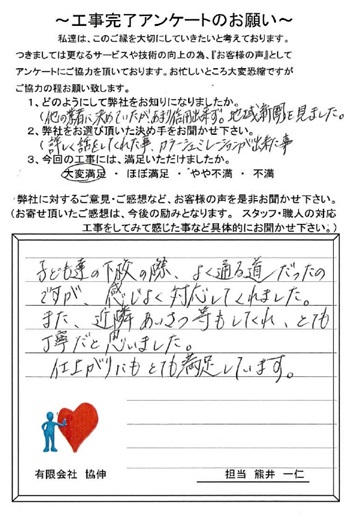 ～工事完了アンケートのお願い～
私達は、このご縁を大切にしていきたいと考えております。
つきましては更なるサービスや技術の向上の為、『お客様の声』として
アンケートにご協力を頂いております。お忙しいところ大変恐縮ですが
ご協力の程お願い致します。
1、どのようにして弊社をお知りになりましたか。
(他の業者に決めていたがあまり信用出来ず。地域新聞を見ました。)
2、弊社をお選び頂いた決め手をお聞かせ下さい。
(詳しく話をしてくれた事、カラーシュミレーションが出来た事)
3、今回の工事には、満足いただけましたか。
大変満足 ・ ほぼ満足 ・ やや不満 ・ 不満
弊社に対するご意見・ご感想など、お客様の声を是非お聞かせ下さい。
(お寄せ頂いたご感想は、今後の励みとなります。 スタッフ・職人の対応
工事をしてみて感じた事など具体的にお聞かせ下さい。)
子ども達の下校の際、よく通る道だったの
ですが、感じよく対応してくれました。
また、近隣あいさつ等もしてくれ、とても
丁寧だと思いました。
仕上がりにもとても満足しています。
有限会社 協伸
担当 熊井 一仁